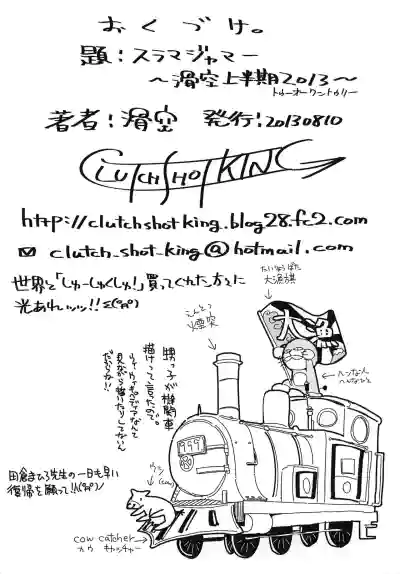 おくづけ。
題:スラマジャマー
~滑空上半期2013~
トゥーオーワントゥリー
著者:滑空 発行:20130810
CLUTCH SHOT KING
http://clutchshotking.blog28.fc2.com
clutch_shot_king@hotmail.com
世界と「しゅーしゅくしゅ!」買ってくれた方々に
光あれッッ!!
たいりょうばた
大漁旗
大漁
えんとつ
煙突
ヘンな人
甥っ子が機関車
描けって言ったので。
見ながら描いたりしてないん
だからね!!
999
ウシ
(cow)
田倉まひろ先生の一日も早い
復帰を願って!!
cow catcher
カウ キャッチャー